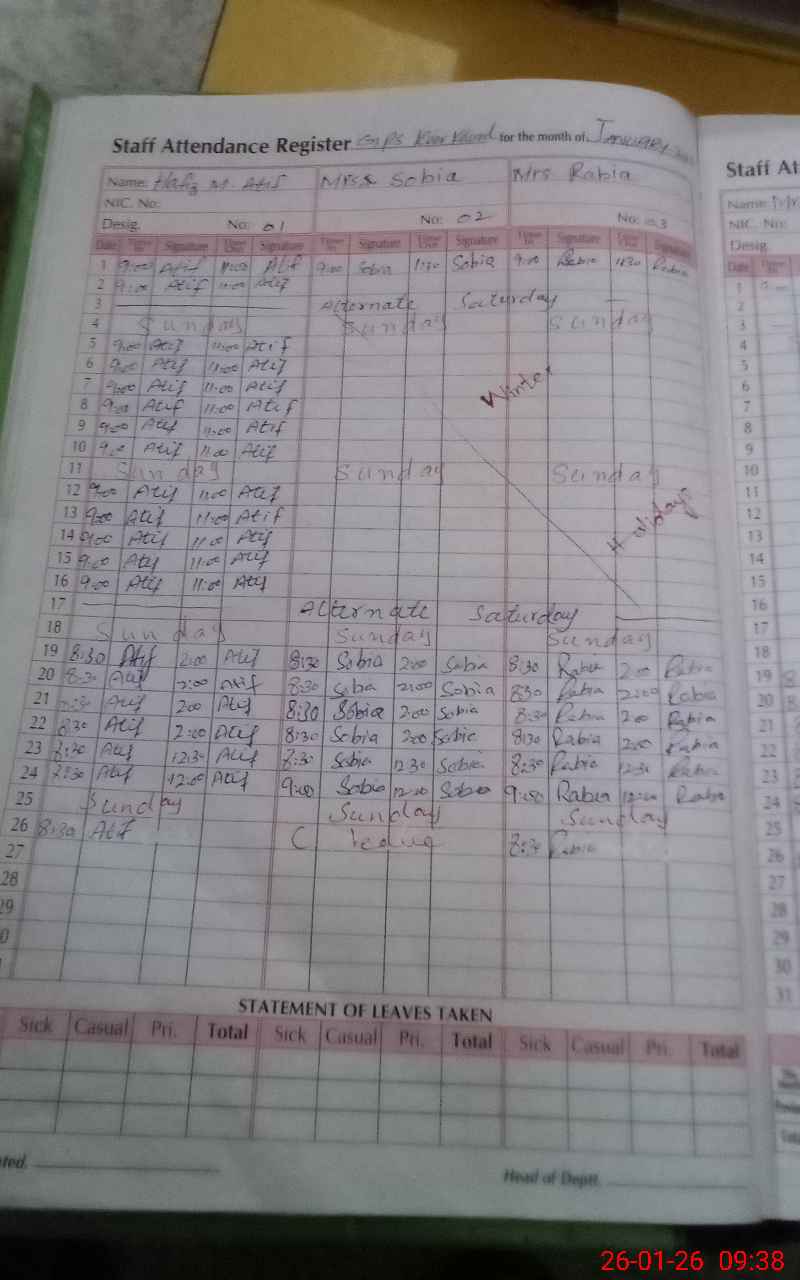 Staff Attendance Register GPS for the month of. January
Staff At
Name: Hafiz M. Atif Mrs Sobia Mrs Rabia
Name:
NIC. No:
NIC. No:
Desig. No: 01 No: 02 No: 03
Desig.
Date Time In Signature Time Out Signature Time In Signature Time Out Signature Time In Signature Time Out Signature
Date Time In
1 9:00 Atif 11:00 Atif 9:00 Sobia 1:30 Sobia 9:00 Rabia 1:30 Rabia
2 9:00 Atif 11:00 Atif
3 Alternate Saturday
4 Sunday Sunday Sunday
5 9:00 Atif 11:00 Atif
6 9:00 Atif 11:00 Atif
7 9:00 Atif 11:00 Atif
Winter
8 9:00 Atif 11:00 Atif
9 9:00 Atif 11:00 Atif
10 9:00 Atif 11:00 Atif
11 Sunday Sunday Sunday
12 9:00 Atif 11:00 Atif
13 9:00 Atif 11:00 Atif
14 9:00 Atif 11:00 Atif
Holidays
15 9:00 Atif 11:00 Atif
16 9:00 Atif 11:00 Atif
17 Alternate Saturday
18 Sunday Sunday Sunday
19 8:30 Atif 2:00 Atif 8:30 Sobia 2:00 Sobia 8:30 Rabia 2:00 Rabia
20 8:30 Atif 2:00 Atif 8:30 Sobia 2:00 Sobia 8:30 Rabia 2:00 Rabia
21 8:30 Atif 2:00 Atif 8:30 Sobia 2:00 Sobia 8:30 Rabia 2:00 Rabia
22 8:30 Atif 2:00 Atif 8:30 Sobia 2:00 Sobia 8:30 Rabia 2:00 Rabia
23 8:30 Atif 12:30 Atif 8:30 Sobia 12:30 Sobia 8:30 Rabia 12:30 Rabia
24 8:30 Atif 12:00 Atif 9:00 Sobia 12:00 Sobia 9:00 Rabia 12:00 Rabia
25 Sunday Sunday Sunday
26 8:30 Atif C leave 8:30 Rabia
27
28
29
1
2
3
4
5
6
7
8
9
10
11
12
13
14
15
16
17
18
19
20
21
22
23
24
25
26
27
28
29
30
31
STATEMENT OF LEAVES TAKEN
Sick Casual Pri. Total Sick Casual Pri. Total Sick Casual Pri. Total
Head of Deptt.
26-01-26 09:38